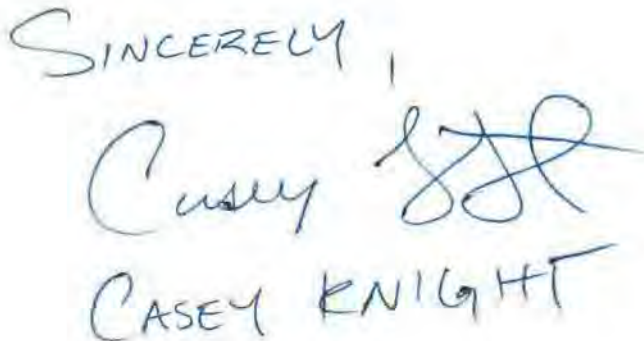 SINCERELY,
Casey
CASEY KNIGHT